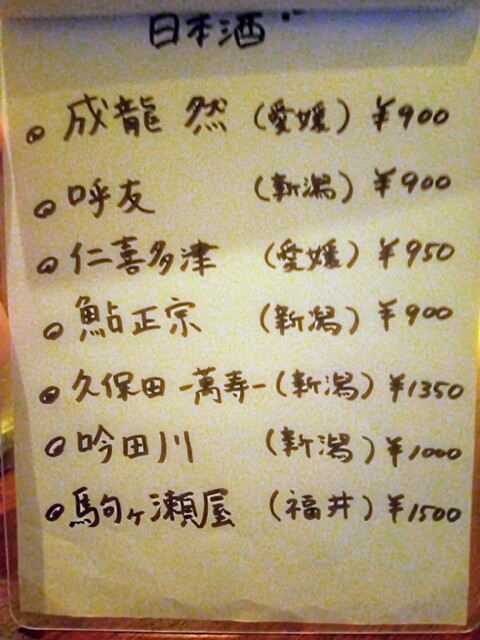 日本酒
成龍 然 (愛媛) ¥900
呼友 (新潟) ¥900
仁喜多津 (愛媛) ¥950
鮎正宗 (新潟) ¥900
久保田 -萬寿- (新潟) ¥1350
吟田川 (新潟) ¥1000
駒ヶ瀬屋 (福井) ¥1500